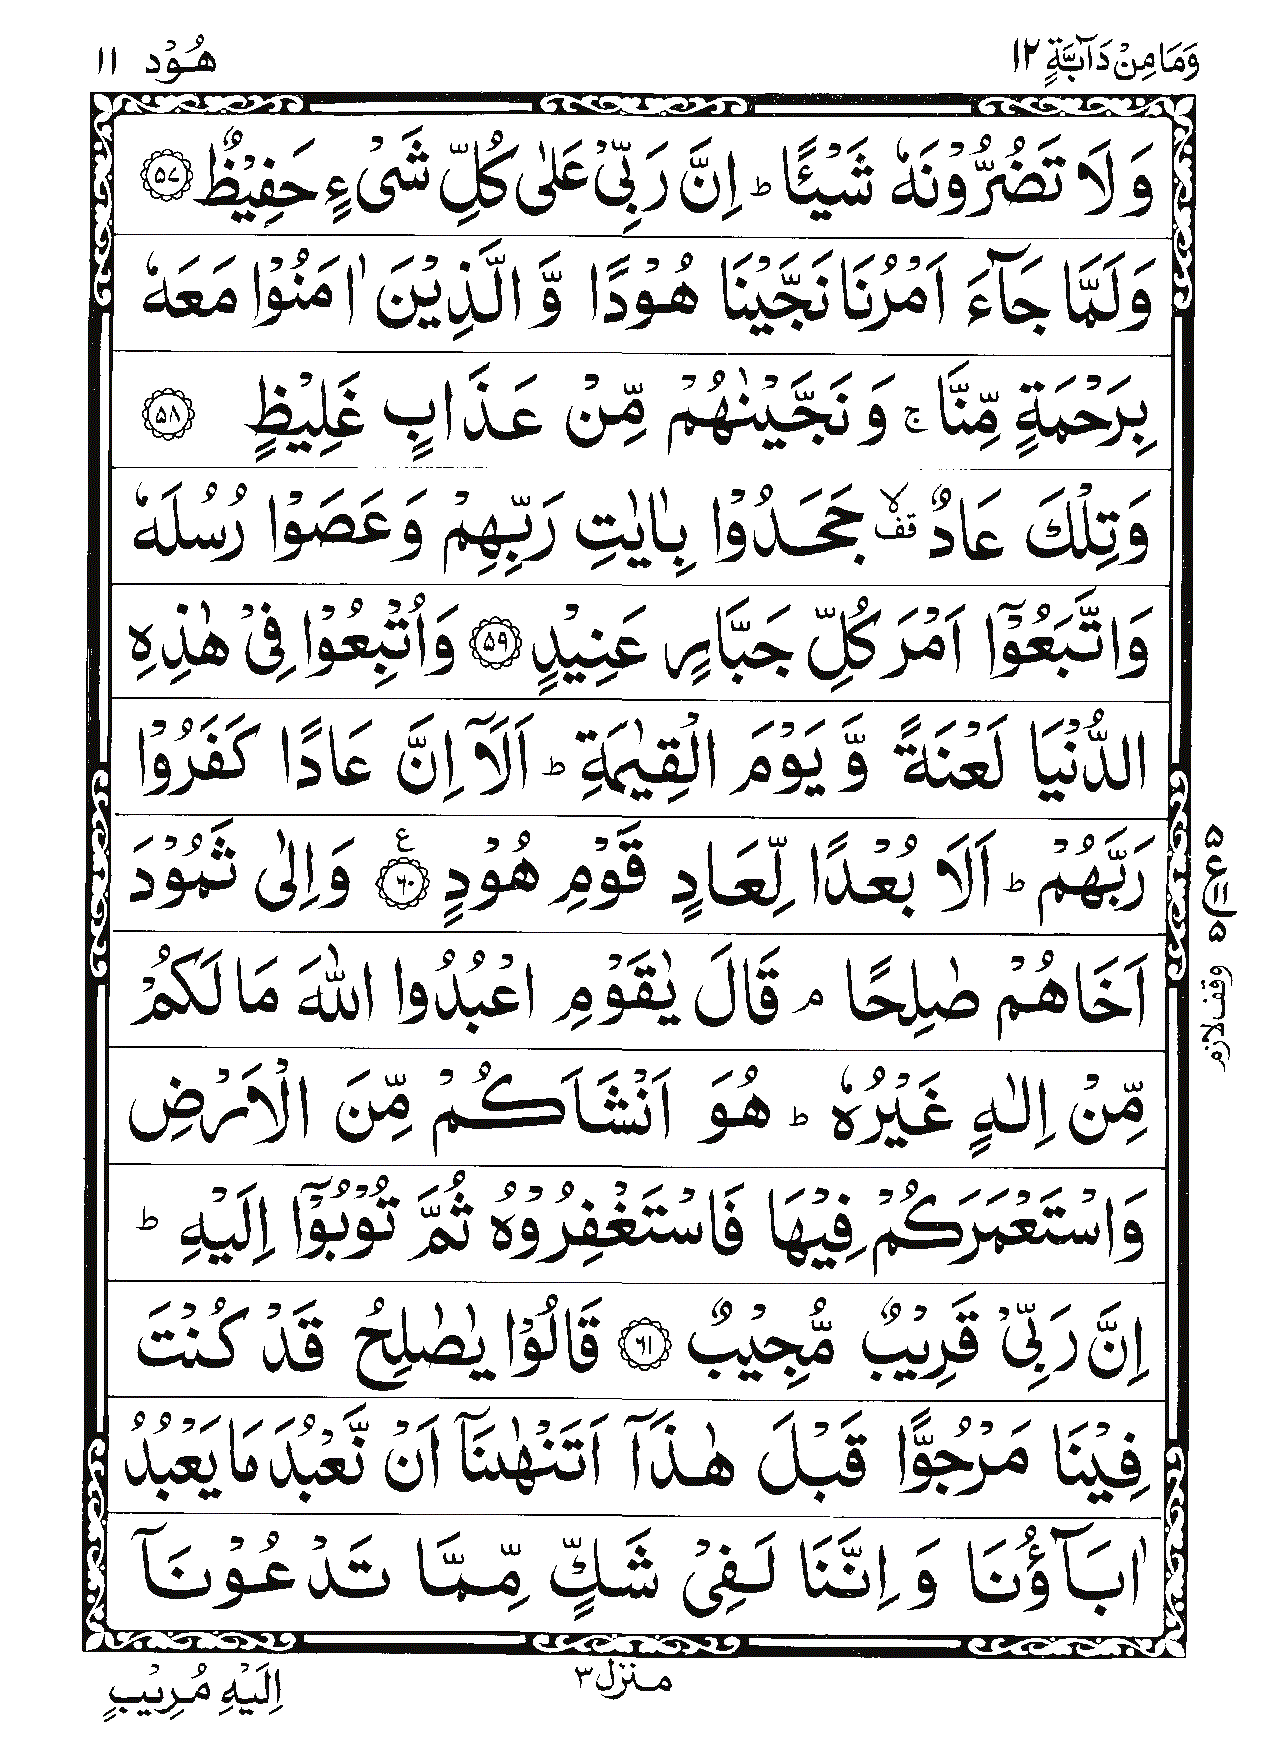 وَمَا مِنْ دَآبَّةٍ ١٢
هُوْد ١١
وَ لَا تَضُرُّوْنَهٗ شَيْـًٔا ؕ اِنَّ رَبِّيْ عَلٰى كُلِّ شَيْءٍ حَفِيْظٌ ۝٥٧
وَلَمَّا جَآءَ اَمْرُنَا نَجَّيْنَا هُوْدًا وَّ الَّذِيْنَ اٰمَنُوْا مَعَهٗ
بِرَحْمَةٍ مِّنَّا ۚ وَ نَجَّيْنٰهُمْ مِّنْ عَذَابٍ غَلِيْظٍ ۝٥٨
وَتِلْكَ عَادٌ ۙ قف جَحَدُوْا بِاٰيٰتِ رَبِّهِمْ وَعَصَوْا رُسُلَهٗ
وَاتَّبَعُوْۤا اَمْرَ كُلِّ جَبَّارٍ عَنِيْدٍ ۝٥٩ وَاُتْبِعُوْا فِيْ هٰذِهِ
الدُّنْيَا لَعْنَةً وَّ يَوْمَ الْقِيٰمَةِ ؕ اَلَاۤ اِنَّ عَادًا كَفَرُوْا
رَبَّهُمْ ؕ اَلَا بُعْدًا لِّعَادٍ قَوْمِ هُوْدٍ ۝٦٠ ع وَاِلٰى ثَمُوْدَ
٥ ع ١١ ٥
اَخَاهُمْ صٰلِحًا ۘ قَالَ يٰقَوْمِ اعْبُدُوا اللّٰهَ مَا لَكُمْ
وقف لازم
مِّنْ اِلٰهٍ غَيْرُهٗ ؕ هُوَ اَنْشَاَكُمْ مِّنَ الْاَرْضِ
وَاسْتَعْمَرَكُمْ فِيْهَا فَاسْتَغْفِرُوْهُ ثُمَّ تُوْبُوْۤا اِلَيْهِ ؕ
اِنَّ رَبِّيْ قَرِيْبٌ مُّجِيْبٌ ۝٦١ قَالُوْا يٰصٰلِحُ قَدْ كُنْتَ
فِيْنَا مَرْجُوًّا قَبْلَ هٰذَاۤ اَتَنْهٰىنَاۤ اَنْ نَّعْبُدَ مَا يَعْبُدُ
اٰبَآؤُنَا وَ اِنَّنَا لَفِيْ شَكٍّ مِّمَّا تَدْعُوْنَاۤ
منزل ٣
اِلَيْهِ مُرِيْبٍ